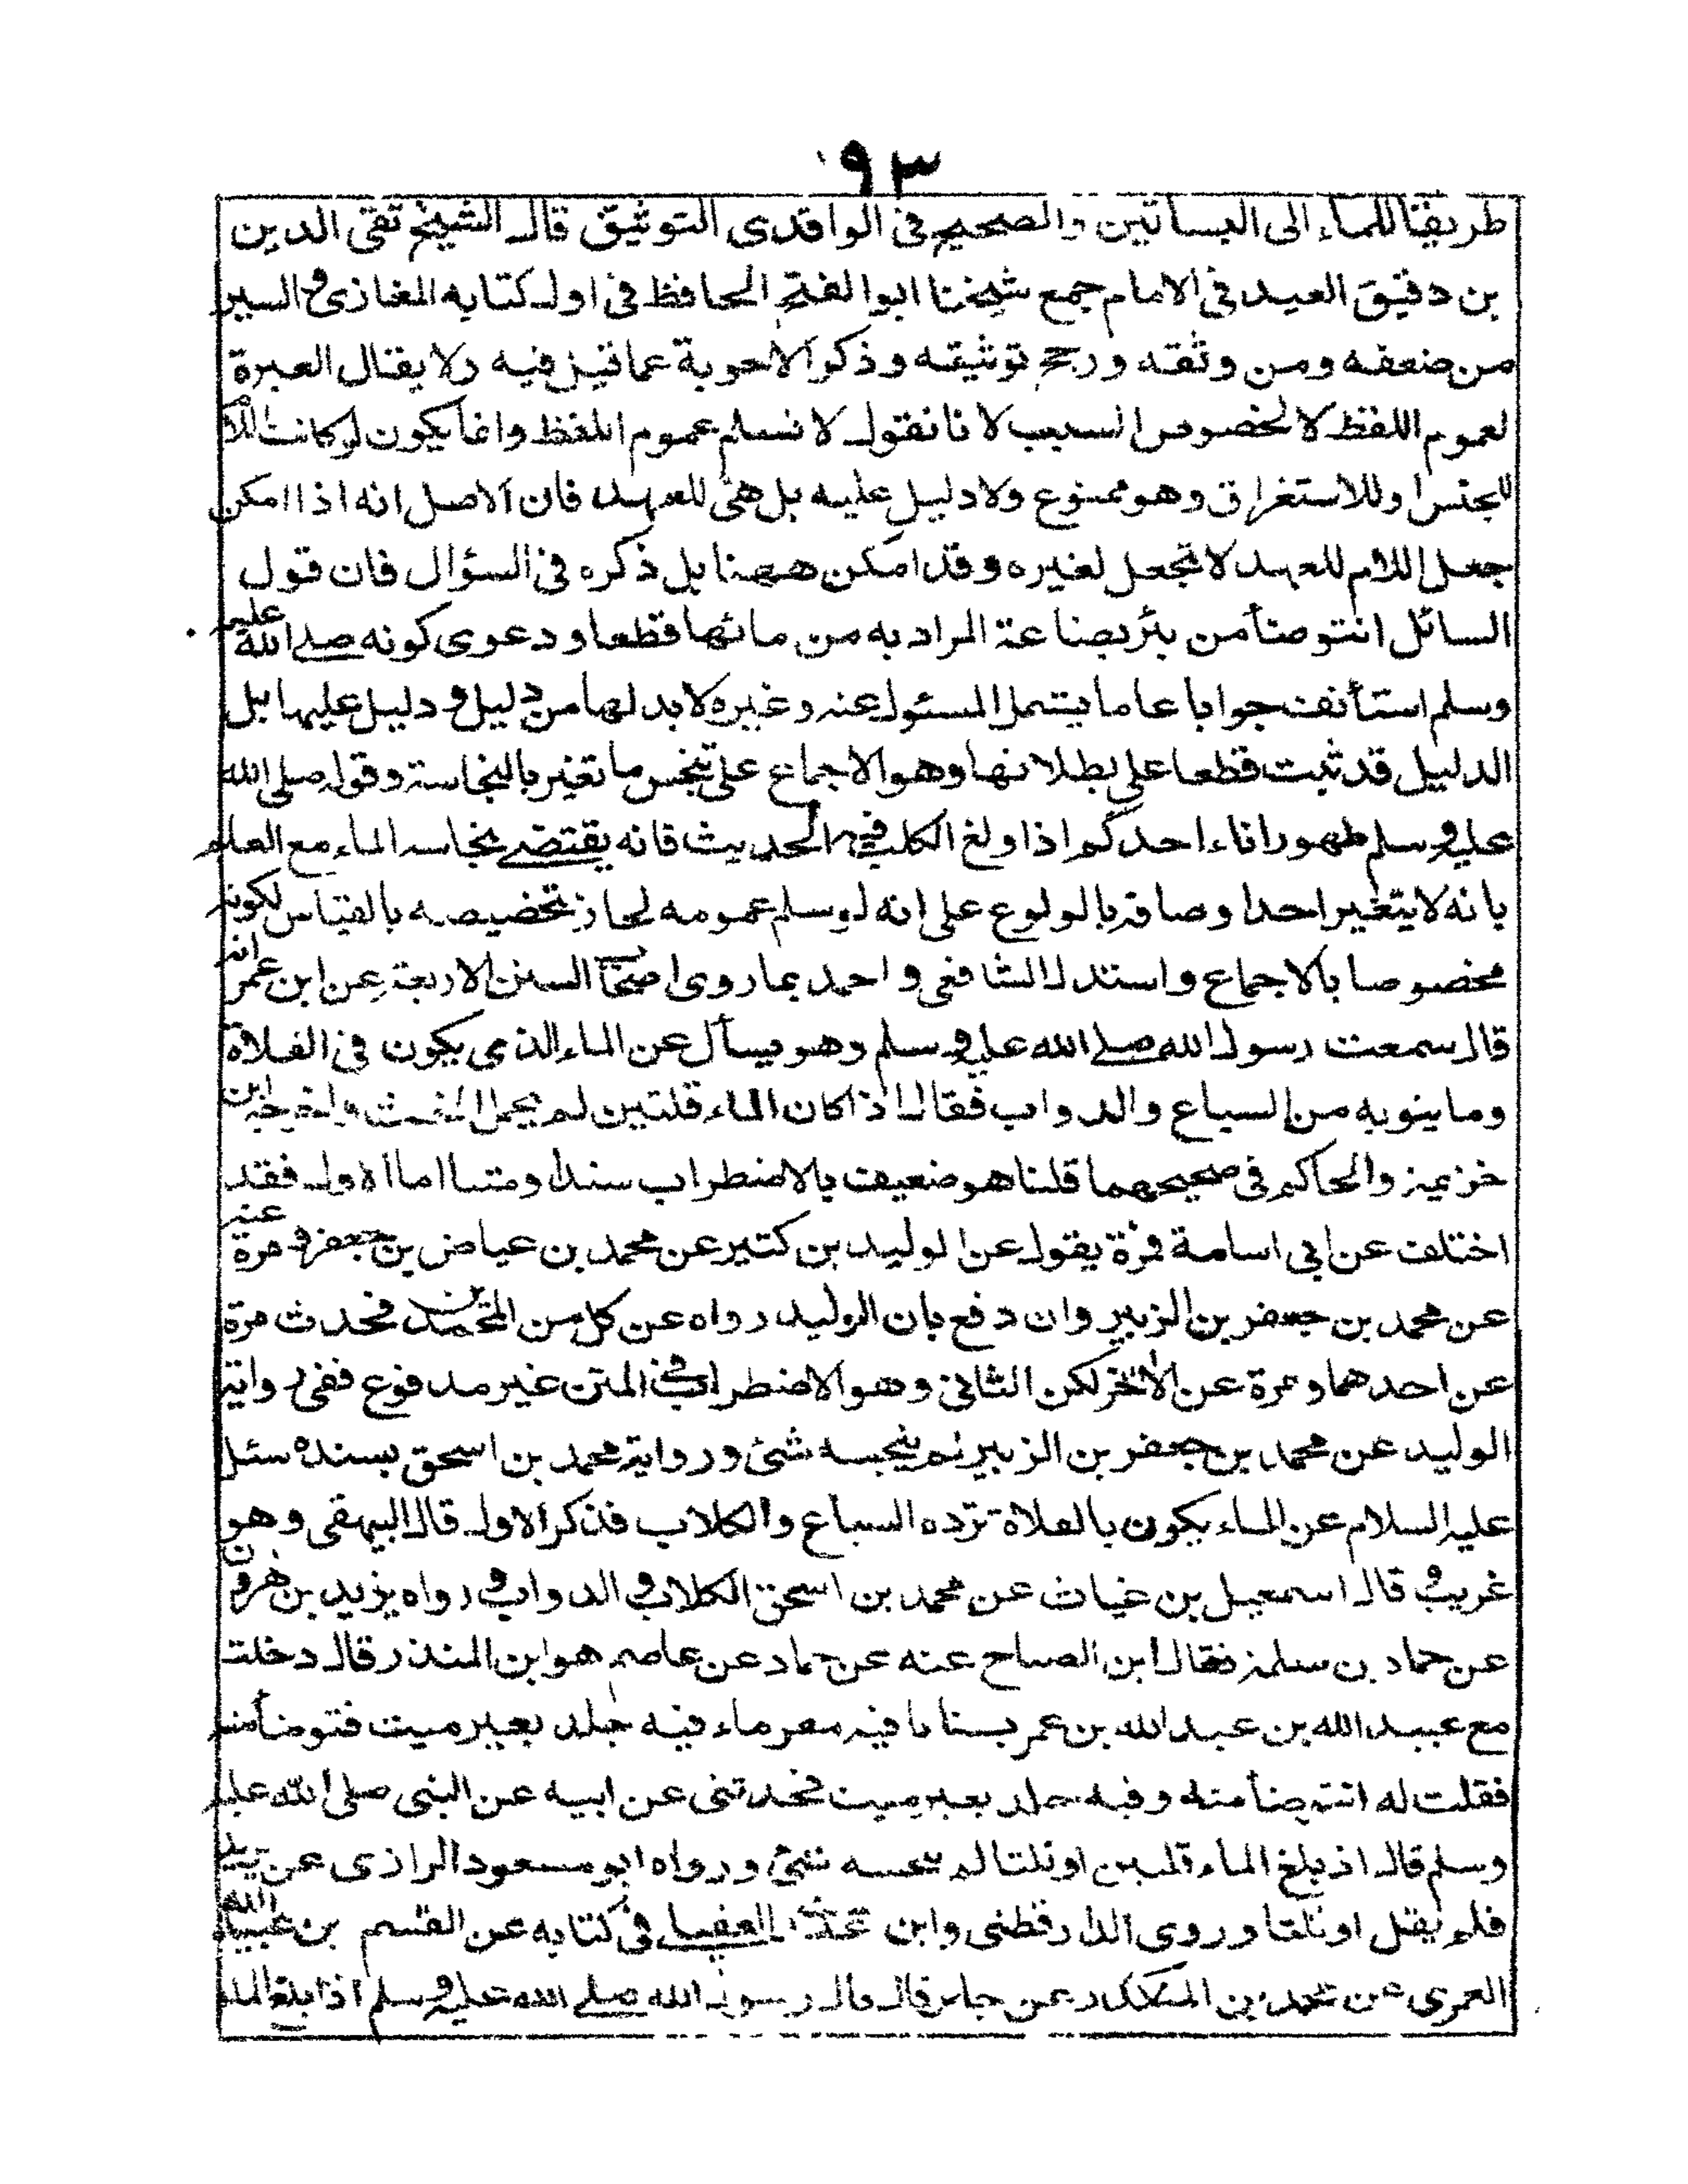 ٩٣
طريقا للماء الى البساتين والصحيح فى الواقدى التوثيق قال الشيخ تقى الدين
بن دقيق العيد فى الامام جمع شيخنا ابو الفتح الحافظ فى اول كتابه المغازى والسير
من ضعفه ومن وثقه ورجح توثيقه وذكر الاجوبة عما قيل فيه ولا يقال العبرة
لعموم اللفظ لا لخصوص السبب لانا نقول لا نسلم عموم اللفظ وانما يكون لو كانت اللام
للجنس او للاستغراق وهو ممنوع ولا دليل عليه بل هى للعهد فان الاصل انه اذا امكن
جعل اللام للعهد لا تجعل لغيره وقد امكن ههنا بل ذكره فى السؤال فان قول
السائل انتوضأ من بئر بضاعة المراد به من مائها قطعا ودعوى كونه صلى الله عليه
وسلم استأنف جوابا عاما يشمل المسئول عنه وغيره لابد لها من دليل ولا دليل عليها بل
الدليل قد ثبت قطعا على بطلانها وهو الاجماع على تنجس ما تغير بالنجاسة وقوله صلى الله
عليه وسلم طهور اناء احدكم اذا ولغ الكلب فيه الحديث فانه يقتضى نجاسة الماء مع العلم
بانه لا يتغير احد اوصافه بالولوغ على انه لو سلم عمومه لجاز تخصيصه بالقياس لكونه
مخصوصا بالاجماع واستدل الشافعى واحمد بما روى اصحاب السنن الاربعة عن ابن عمر انه
قال سمعت رسول الله صلى الله عليه وسلم وهو يسأل عن الماء الذى يكون فى الفلاة
وما ينوبه من السباع والدواب فقال اذا كان الماء قلتين لم يحمل الخبث واخرجه ابن
خزيمة والحاكم فى صحيحهما قلنا هو ضعيف بالاضطراب سندا ومتنا اما الاول فقد
اختلف عن ابى اسامة فمرة يقول عن الوليد بن كثير عن محمد بن عباض بن جعفر ومرة عنه
عن محمد بن جعفر بن الزبير وان دفع بان الوليد رواه عن كل من المحمدين فحدث مرة
عن احدهما ومرة عن الآخر لكن الثانى وهو الاضطراب فى المتن غير مدفوع ففى رواية
الوليد عن محمد بن جعفر بن الزبير لم ينجسه شئ ورواية محمد بن اسحق بسنده سئل
عليه السلام عن الماء يكون بالفلاة ترده السباع والكلاب فذكر الاول قال البيهقى وهو
غريب وقال اسمعيل بن عياث عن محمد بن اسحق الكلاب والدواب ورواه يزيد بن هرون
عن حماد بن سلمة فقال ابن الصباح عنه عن حماد عن عاصم هو ابن المنذر قال دخلت
مع عبيد الله بن عبد الله بن عمر بستانا فيه مقر ماء فيه جلد بعير ميت فتوضأ منه
فقلت له انتوضأ منه وفيه جلد بعير ميت فحدثنى عن ابيه عن النبى صلى الله عليه
وسلم قال اذ بلغ الماء قلتين او ثلثا لم ينجسه شئ ورواه ابو مسعود الرازى عن يزيد
فلم يقل او ثلثا وروى الدارقطنى وابن عدى والعقيلى فى كتابه عن القسم بن عبيد الله
العمرى عن محمد بن المنكدر عن جابر قال قال رسول الله صلى الله عليه وسلم اذا بلغ الماء